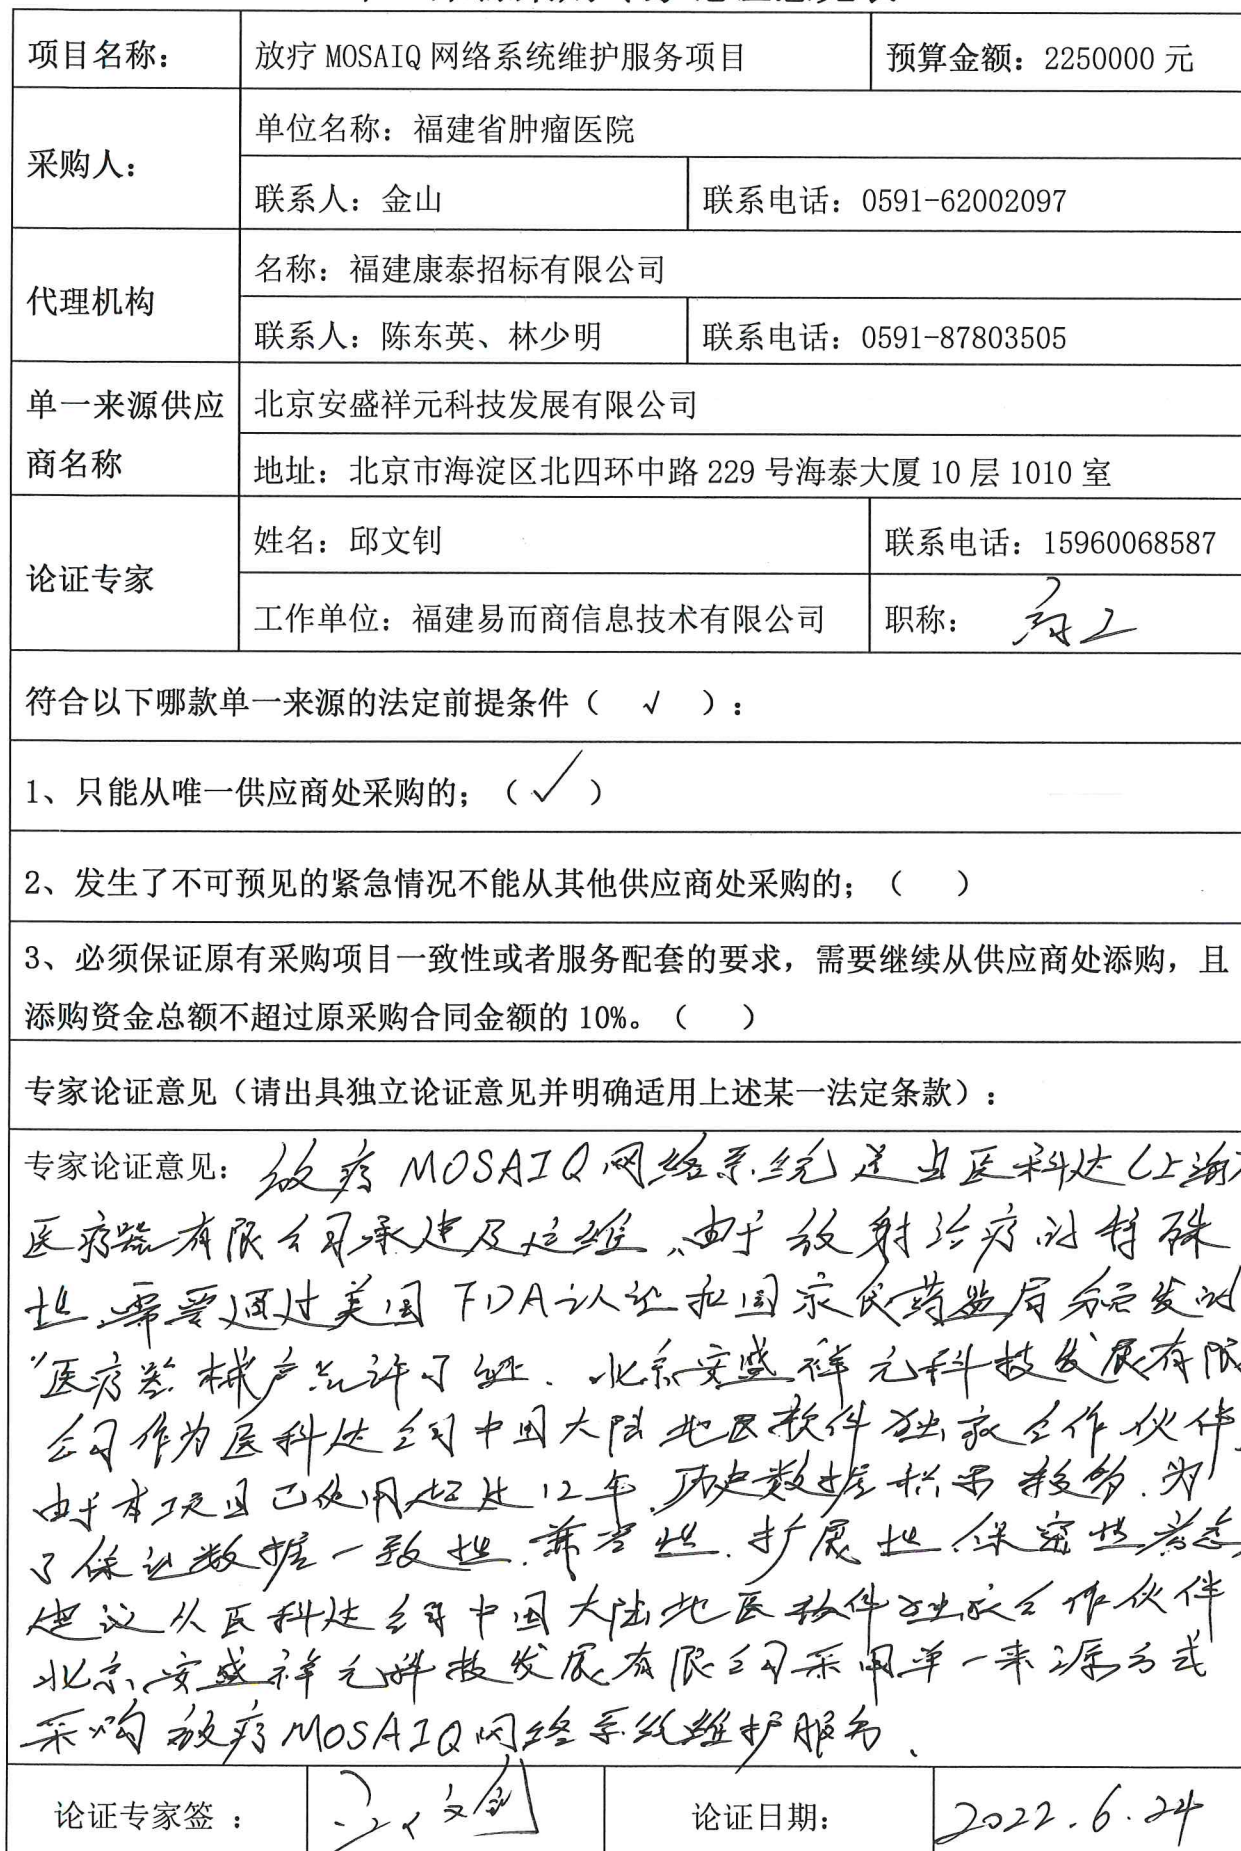 项目名称：
放疗 MOSAIQ 网络系统维护服务项目
预算金额：2250000 元
采购人：
单位名称：福建省肿瘤医院
联系人：金山
联系电话：0591-62002097
代理机构
名称：福建康泰招标有限公司
联系人：陈东英、林少明
联系电话：0591-87803505
单一来源供应
商名称
北京安盛祥元科技发展有限公司
地址：北京市海淀区北四环中路 229 号海泰大厦 10 层 1010 室
论证专家
姓名：邱文钊
联系电话：15960068587
工作单位：福建易而商信息技术有限公司
职称：高工
符合以下哪款单一来源的法定前提条件（ √ ）：
1、只能从唯一供应商处采购的；（√）
2、发生了不可预见的紧急情况不能从其他供应商处采购的；（ ）
3、必须保证原有采购项目一致性或者服务配套的要求，需要继续从供应商处添购，且
添购资金总额不超过原采购合同金额的 10%。（ ）
专家论证意见（请出具独立论证意见并明确适用上述某一法定条款）：
专家论证意见：放疗 MOSAIQ 网络系统是由医科达（上海）
医疗器有限公司承建及运维，由于放射治疗的特殊
性，需要通过美国 FDA 认证和国家食药监局颁发的
“医疗器械产品许可证。北京安盛祥元科技发展有限
公司作为医科达公司中国大陆地区软件独家合作伙伴，
由于本项目已使用超过12年，历史数据积累较多，为
了保证数据一致性、兼容性、扩展性、保密性考虑，
建议从医科达公司中国大陆地区软件独家合作伙伴
北京安盛祥元科技发展有限公司采用单一来源方式
采购放疗MOSAIQ网络系统维护服务。
论证专家签 ：
邱文钊
论证日期：
2022.6.24